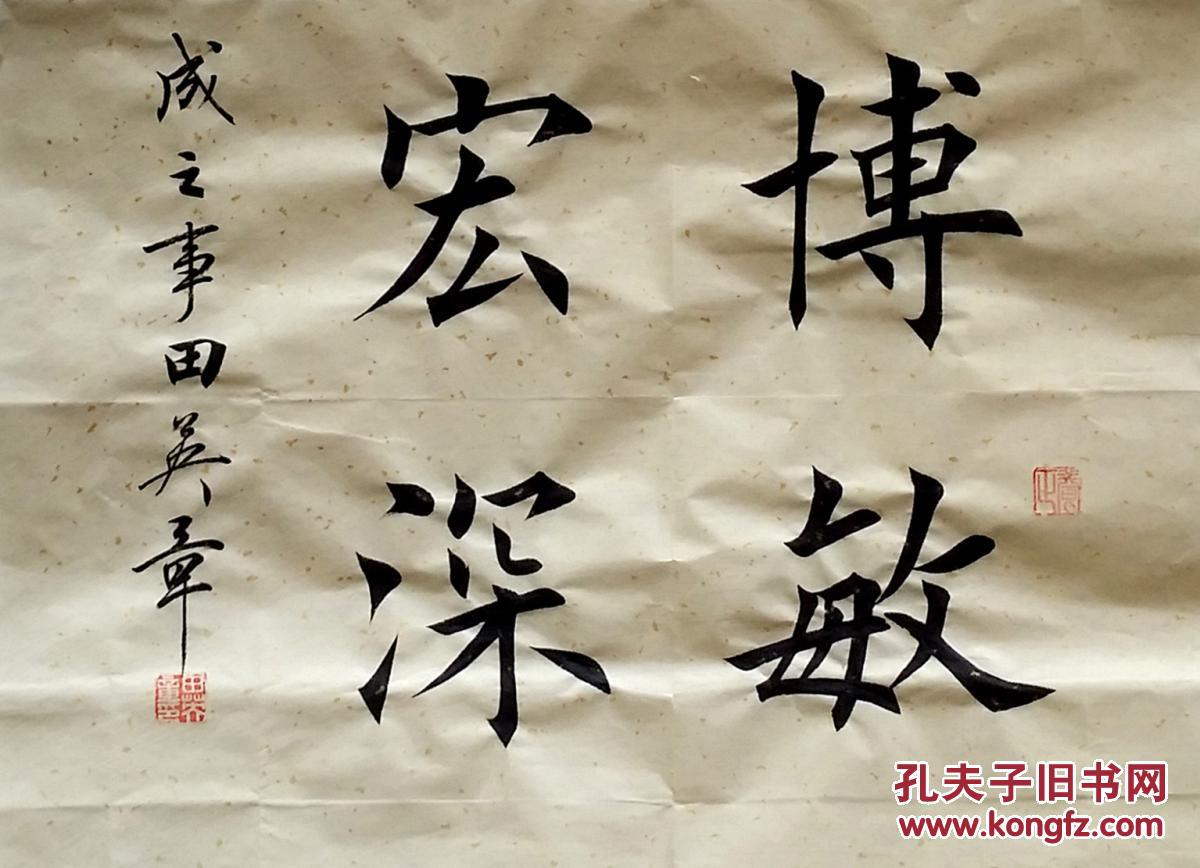 博敏
宏深
成之事田英章
孔夫子旧书网
www.kongfz.com